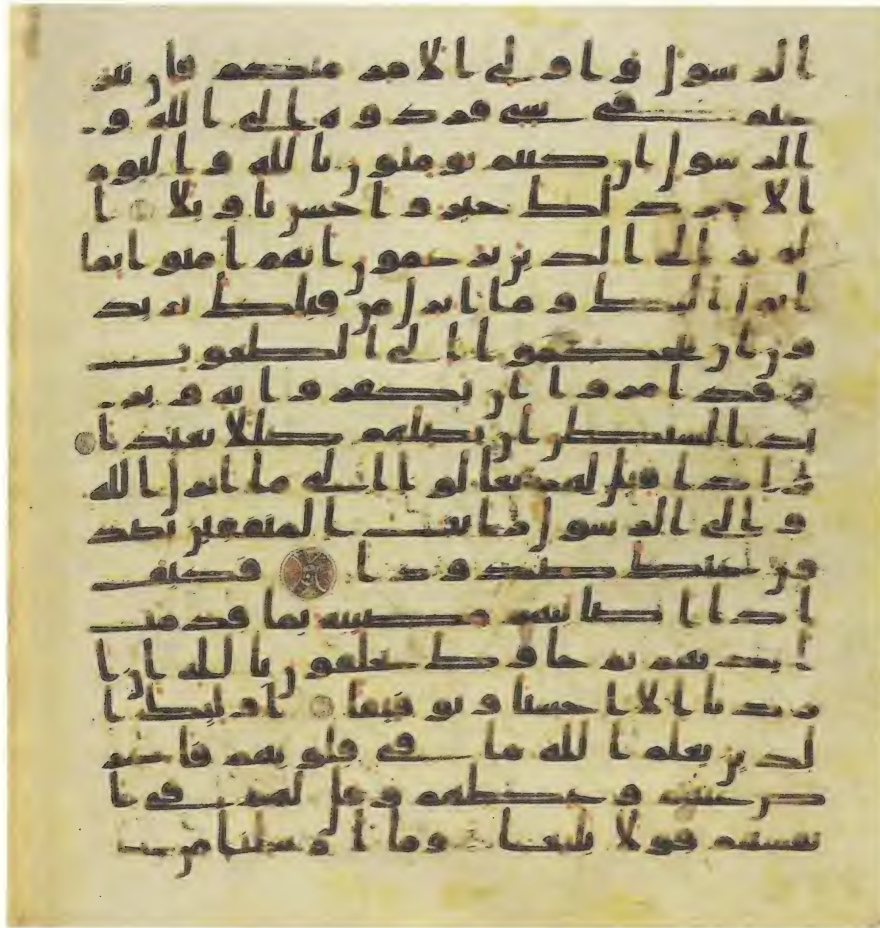 الرسول واولى الامر منكم فان تنز
عتم فى شى فردوه الى الله و
الرسول ان كنتم تومنون بالله واليوم
الاخر ذلك خير واحسن تاويلا ا
لم تر الى الذين يزعمون انهم امنوا بما
انزل اليك وما انزل من قبلك يريد
ون ان يتحكموا الى الطغوت
وقد امروا ان يكفروا به وير
يد الشيطن ان يضلهم ضللا بعيدا
واذا قيل لهم تعالوا الى ما انزل الله
والى الرسول رايت المنفقين يصد
ون عنك صدودا فكيف
اذا اصابتهم مصيبة بما قدمت
ايديهم ثم جاوك يحلفون بالله ان ا
ردنا الا احسنا وتوفيقا اوليك ا
لذين يعلم الله ما فى قلوبهم فاعر
ض عنهم وعظهم وقل لهم فى ا
نفسهم قولا بليغا وما ارسلنا من